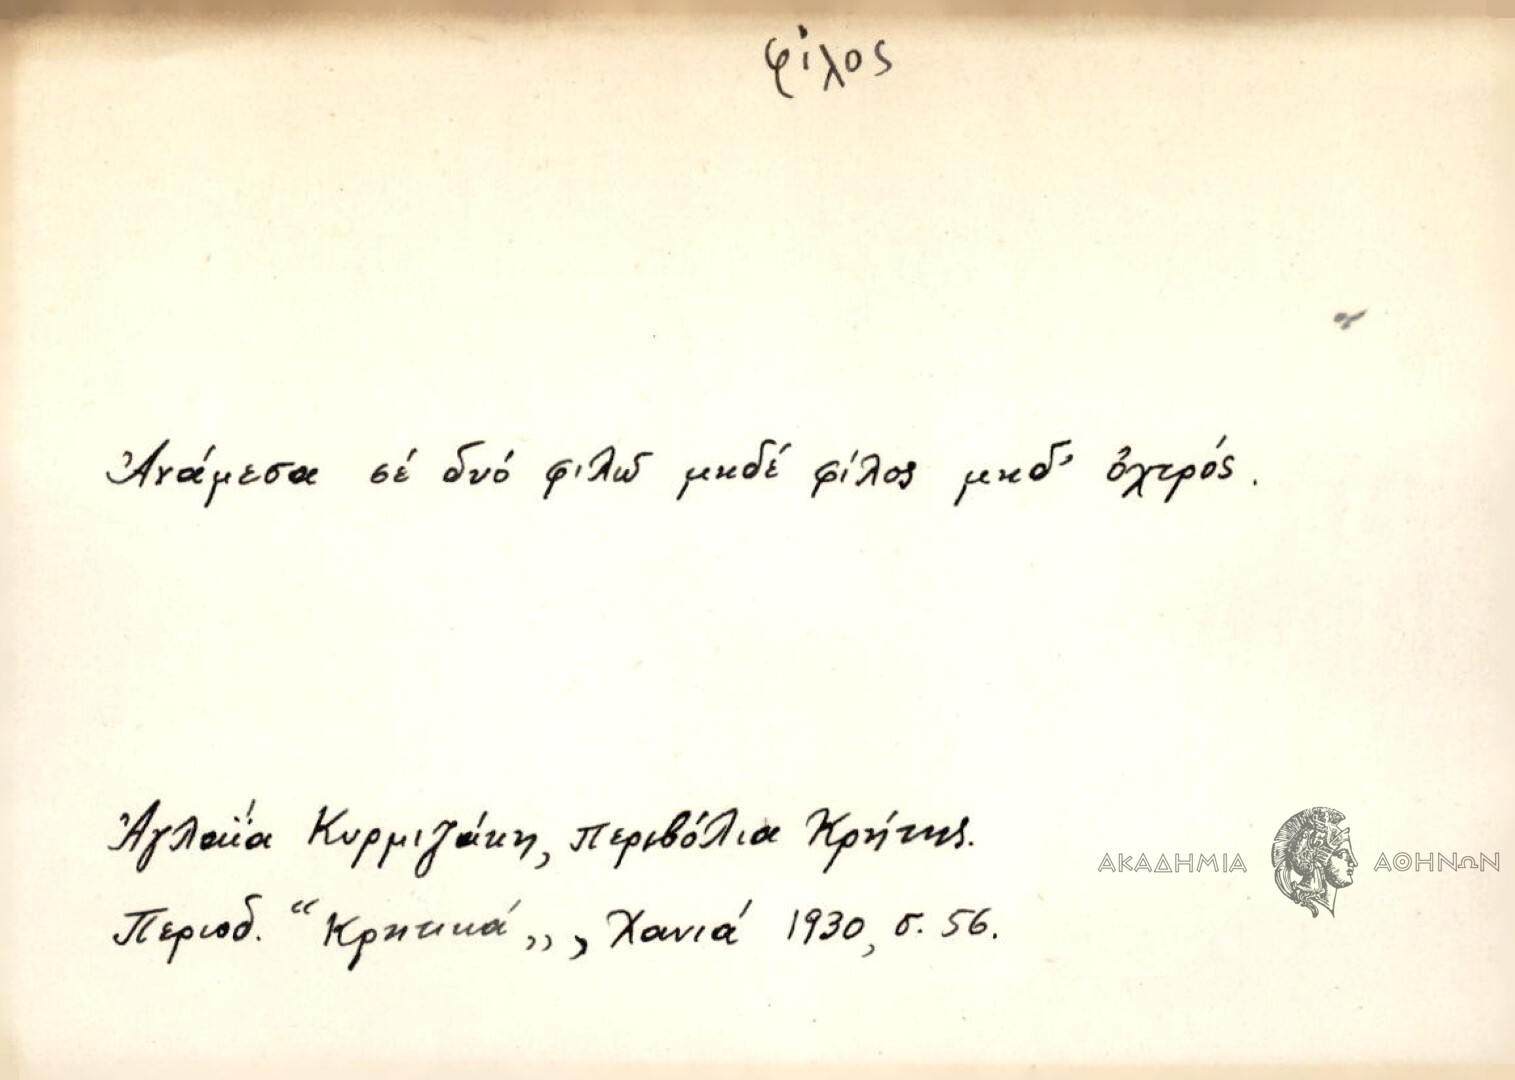 φίλος
Ἀνάμεσα σέ δυό φιλῶ μηδέ φίλος μηδ' ὀχτρός.
Ἀγλαΐα Κυρμιζάκη, Περιβόλια Κρήτης.
ΑΚΑΔΗΜΙΑ ΑΘΗΝΩΝ
Περιοδ. “Κρητικά,,, Χανιά 1930, σ. 56.